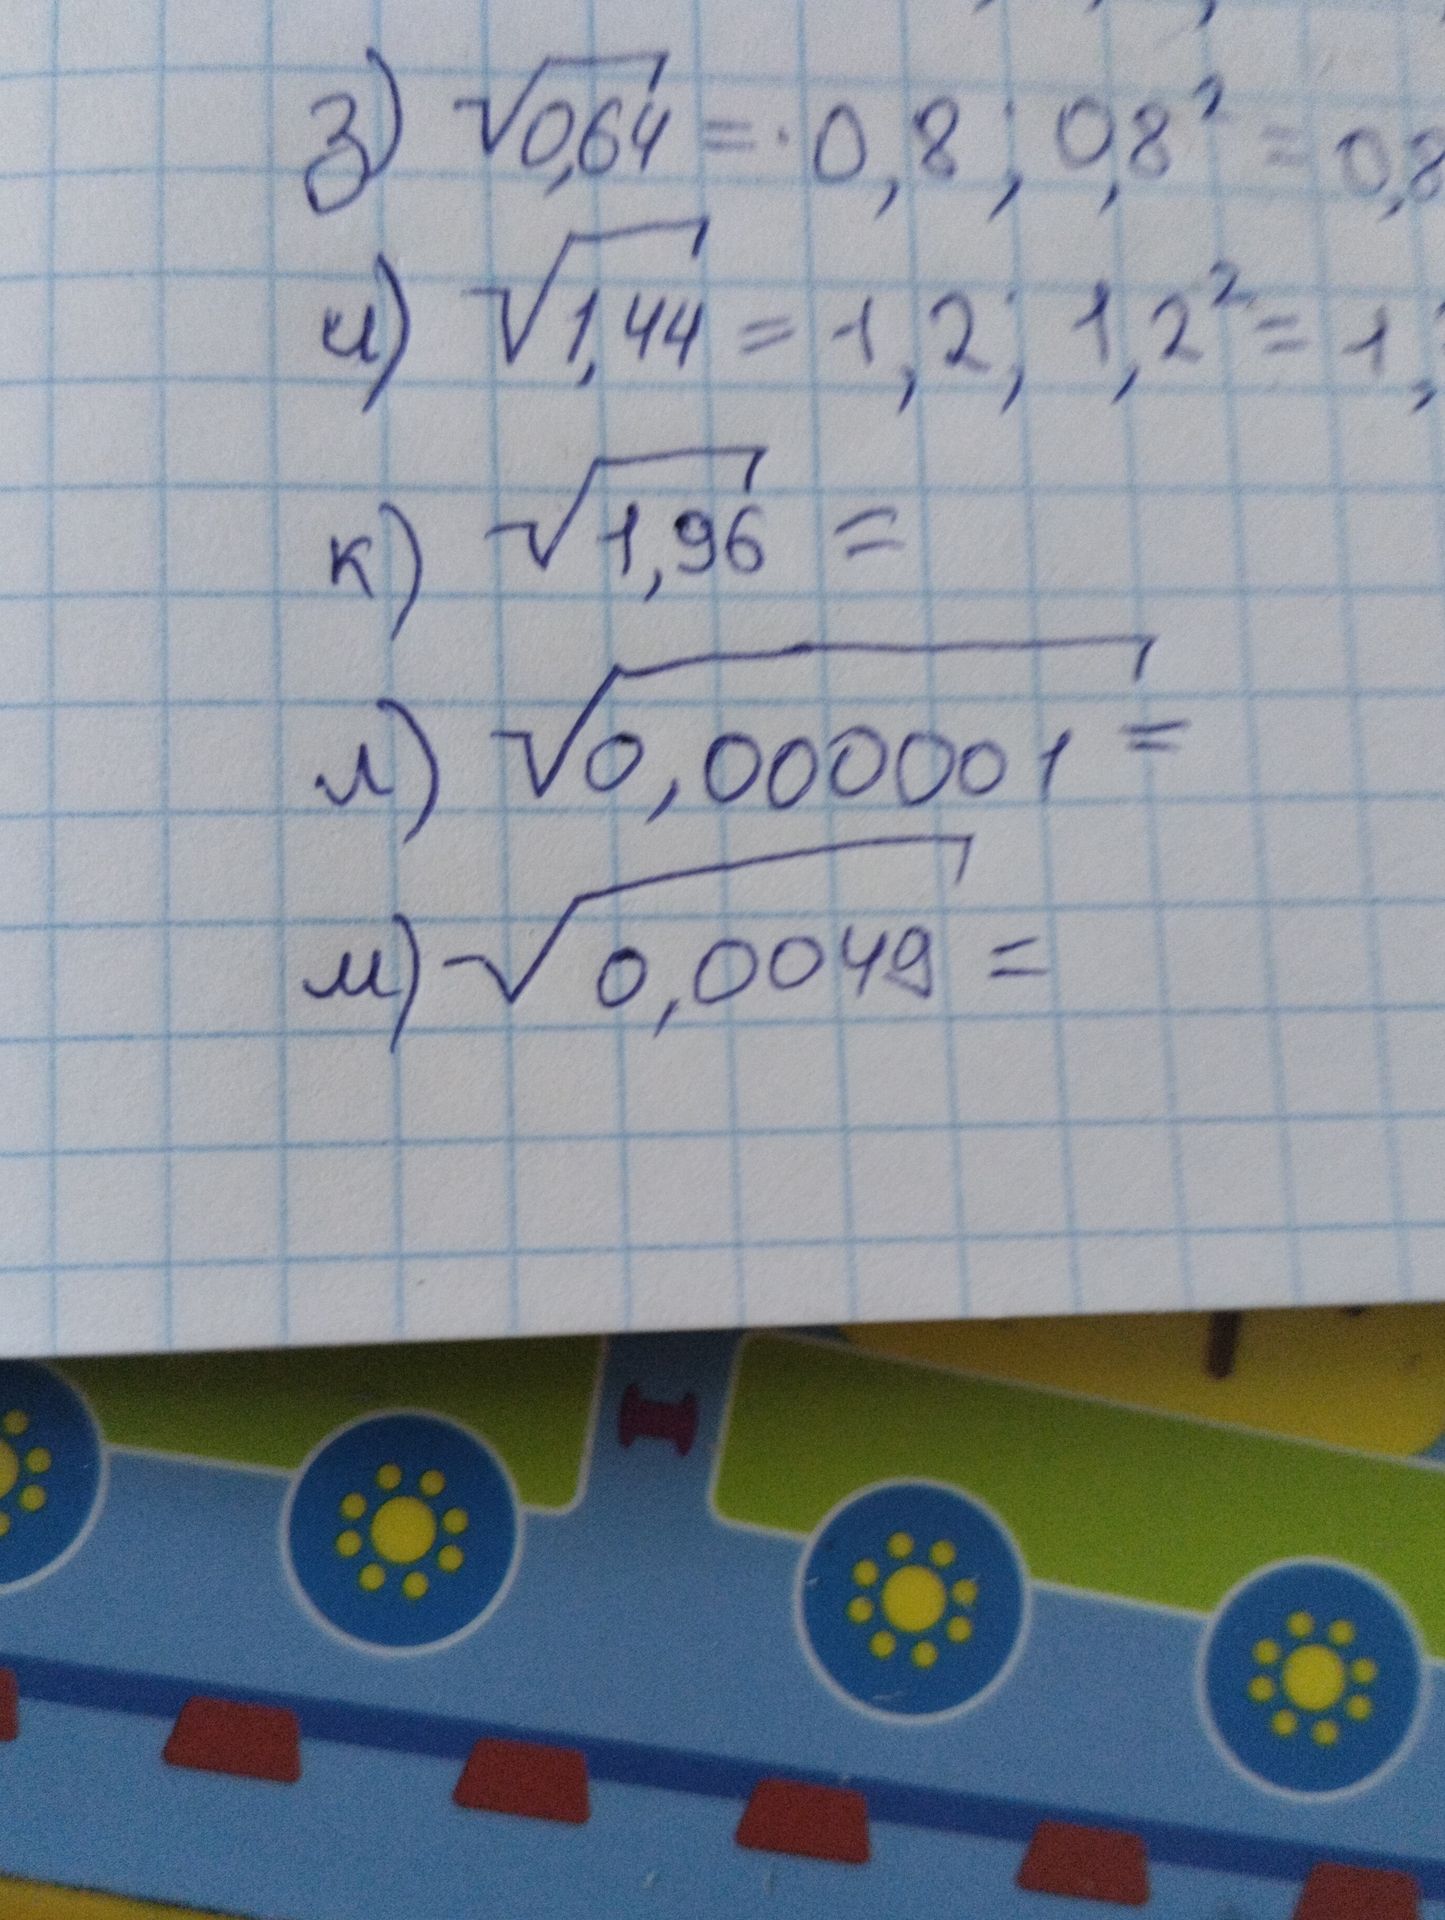 з) √0,64 = 0,8; 0,8² = 0,8
и) √1,44 = 1,2; 1,2² = 1,
к) √1,96 =
л) √0,000001 =
м) √0,0049 =